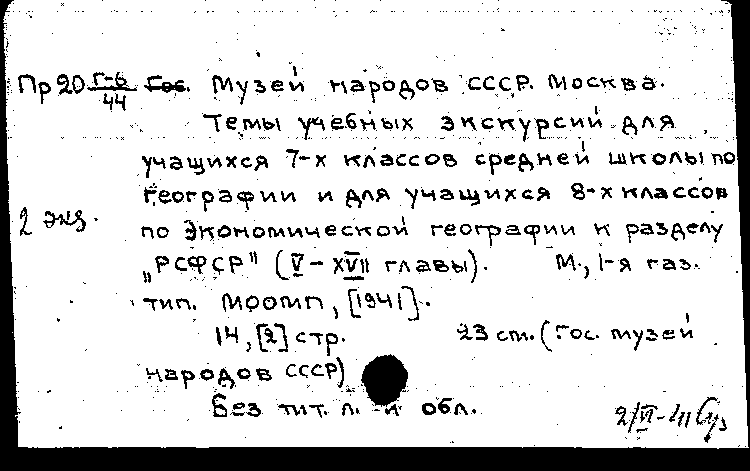 Пр 20 Г-6/44 Гос. Музей народов СССР. Москва.
Темы учебных экскурсий для
учащихся 7-х классов средней школы по
географии и для учащихся 8-х классов
2 экз. по экономической географии к разделу
„РСФСР" (V – XVII главы). М., 1-я газ.
тип. МООМП, [1941].
14, [2] стр. 23 см. (Гос. музей
народов СССР)
Без тит. л. и обл.